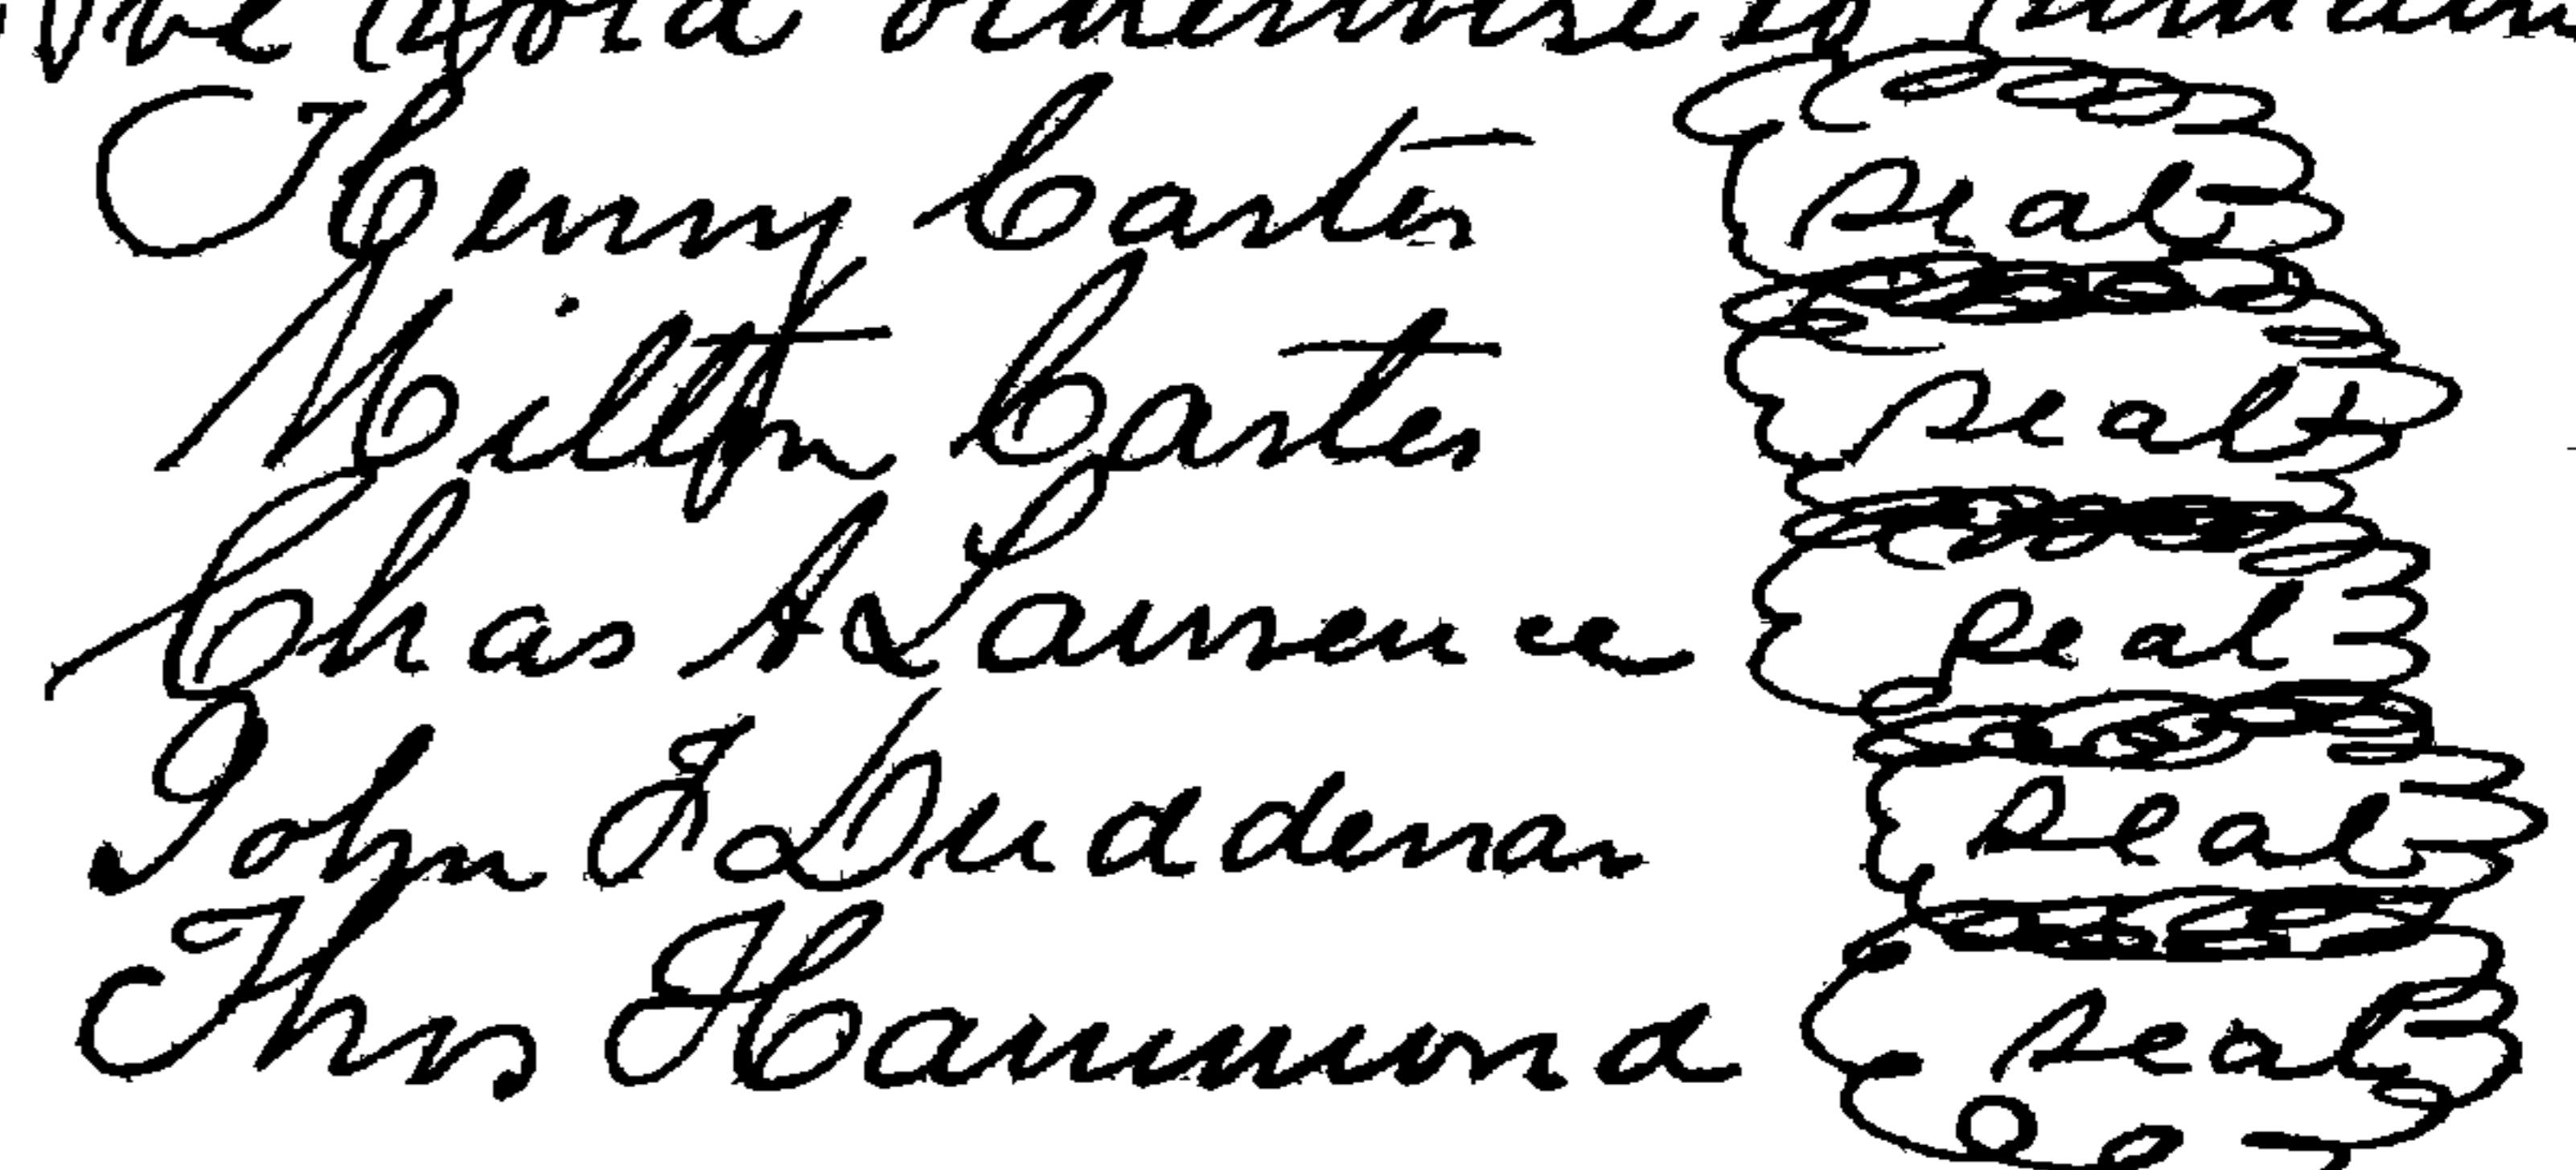 be void otherwise to remain
Henry Carter seal
Milton Carter seal
Chas A Lawrence seal
John F Duddenar seal
Thos Hammond seal